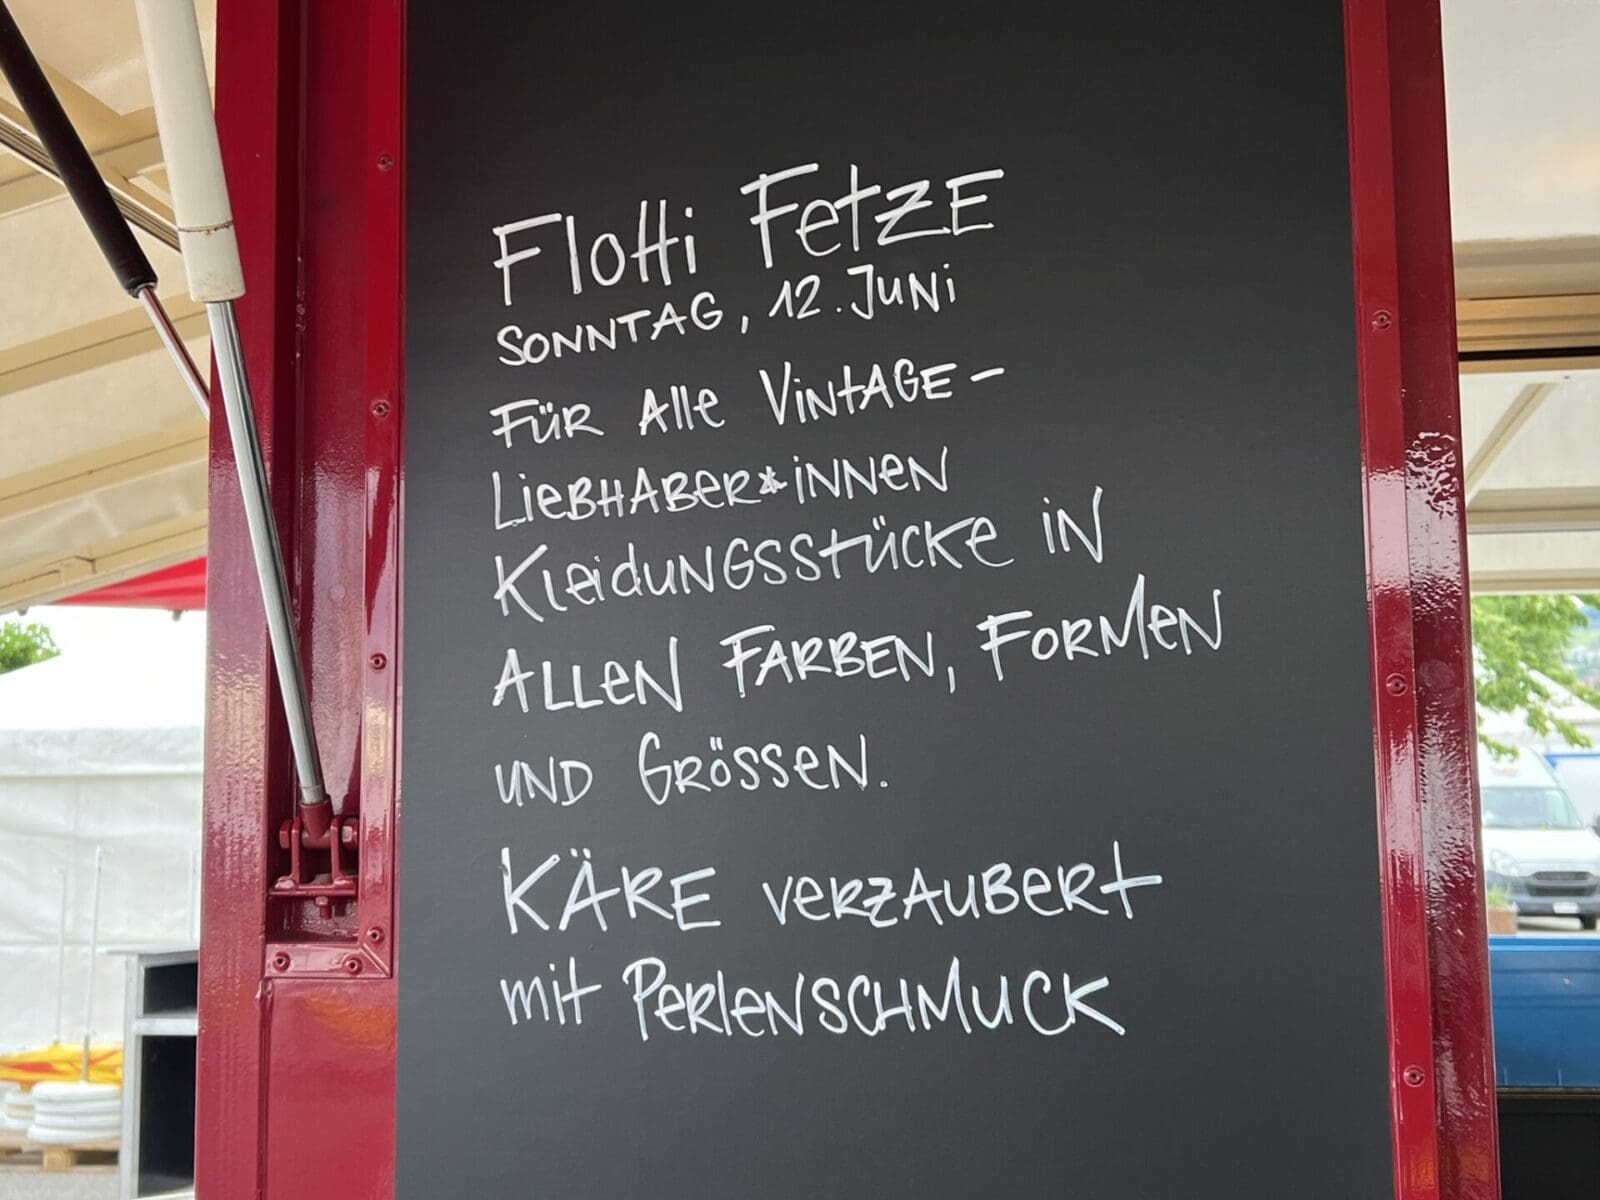 Flotti Fetze
Sonntag, 12. Juni
Für alle Vintage-
Liebhaber*innen
Kleidungsstücke in
allen Farben, Formen
und Grössen.
Käre verzaubert
mit Perlenschmuck